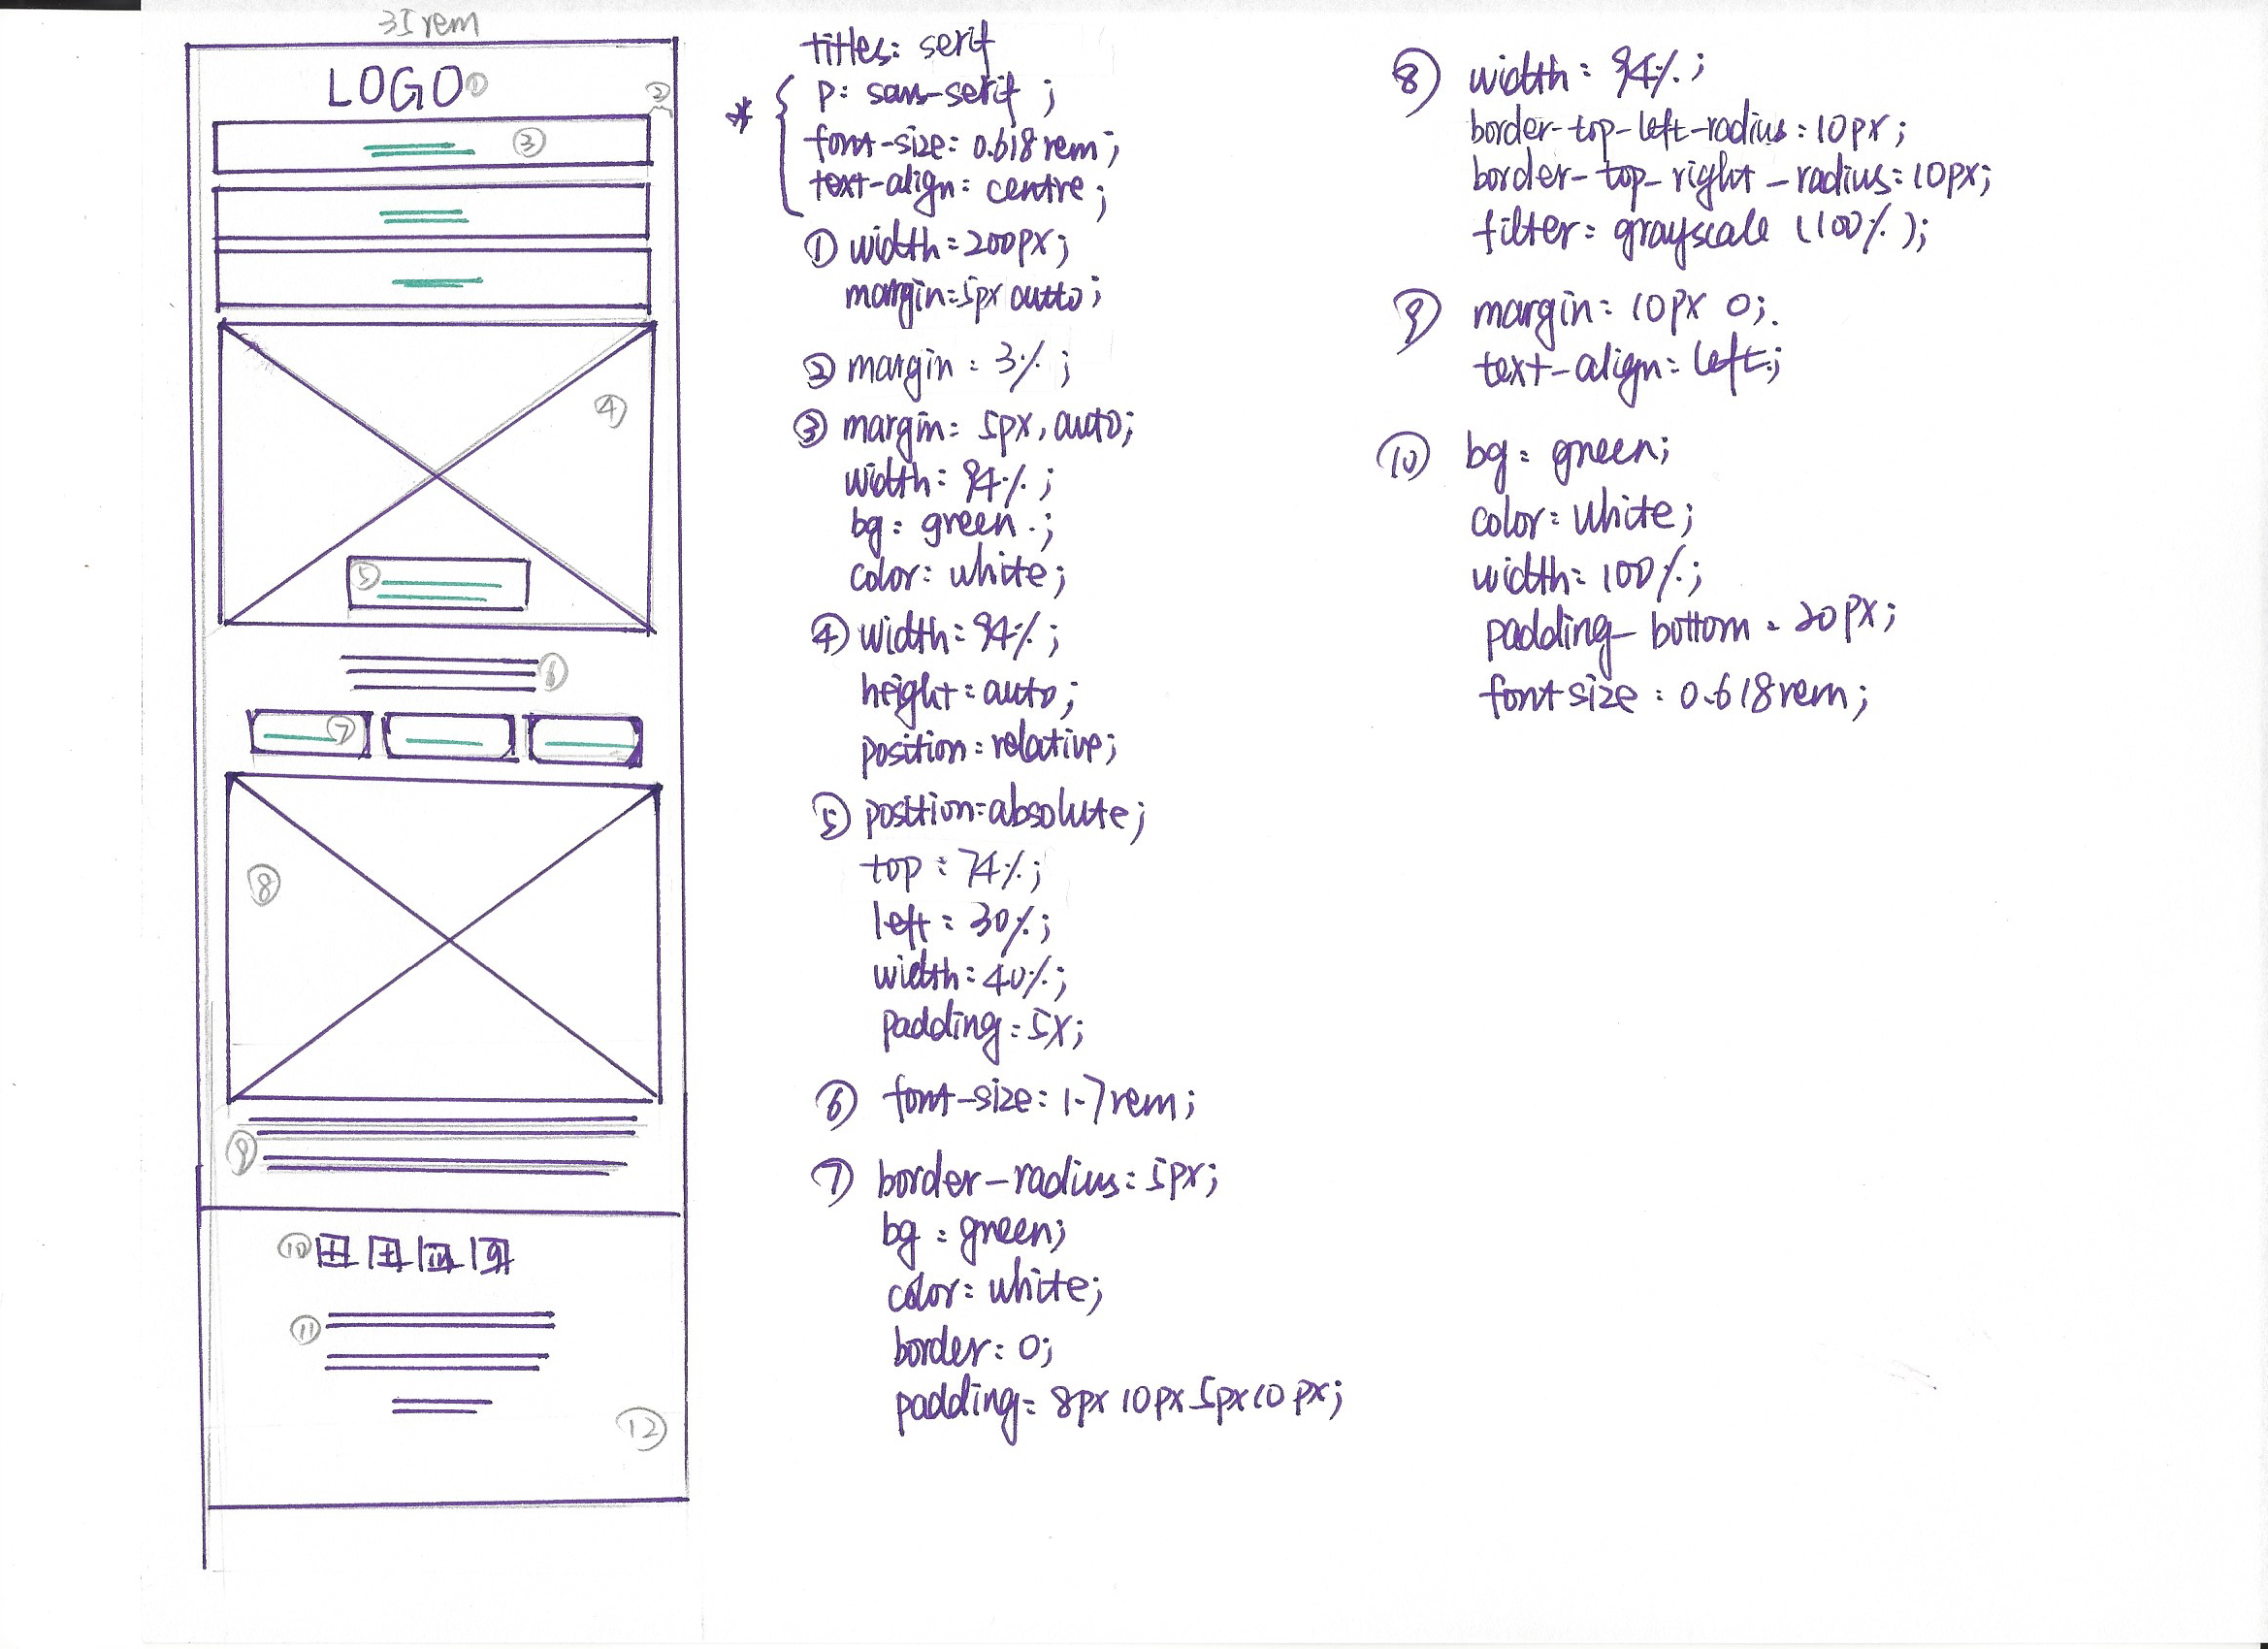 35rem
LOGO ①
②
③
④
⑤
⑥
⑦
⑧
⑨
⑩
⑪
⑫
titles: serif
* { p: sans-serif ;
font-size: 0.618rem;
text-align: centre;
① width: 200px;
margin: 5px auto;
② margin: 3% ;
③ margin: 5px, auto;
width: 94% ;
bg: green.;
color: white;
④ width: 94% ;
height: auto;
position: relative;
⑤ position: absolute;
top: 74%;
left: 30%;
width: 40%;
padding: 5x;
⑥ font-size: 1.7rem;
⑦ border-radius: 5px;
bg: green;
color: white;
border: 0;
padding: 8px 10px 5px 10px;
⑧ width: 94% ;
border-top-left-radius: 10px;
border-top-right-radius: 10px;
filter: grayscale (100%);
⑨ margin: 10px 0;.
text-align: left;
⑩ bg: green;
color: white;
width: 100%;
padding-bottom: 20px;
font size: 0.618rem;